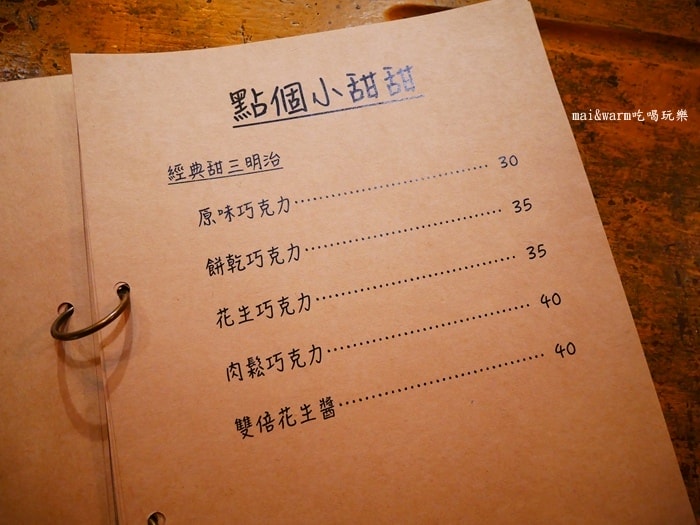 點個小甜甜
mai&warm吃喝玩樂
經典甜三明治
原味巧克力 30
餅乾巧克力 35
花生巧克力 35
肉鬆巧克力 40
雙倍花生醬 40